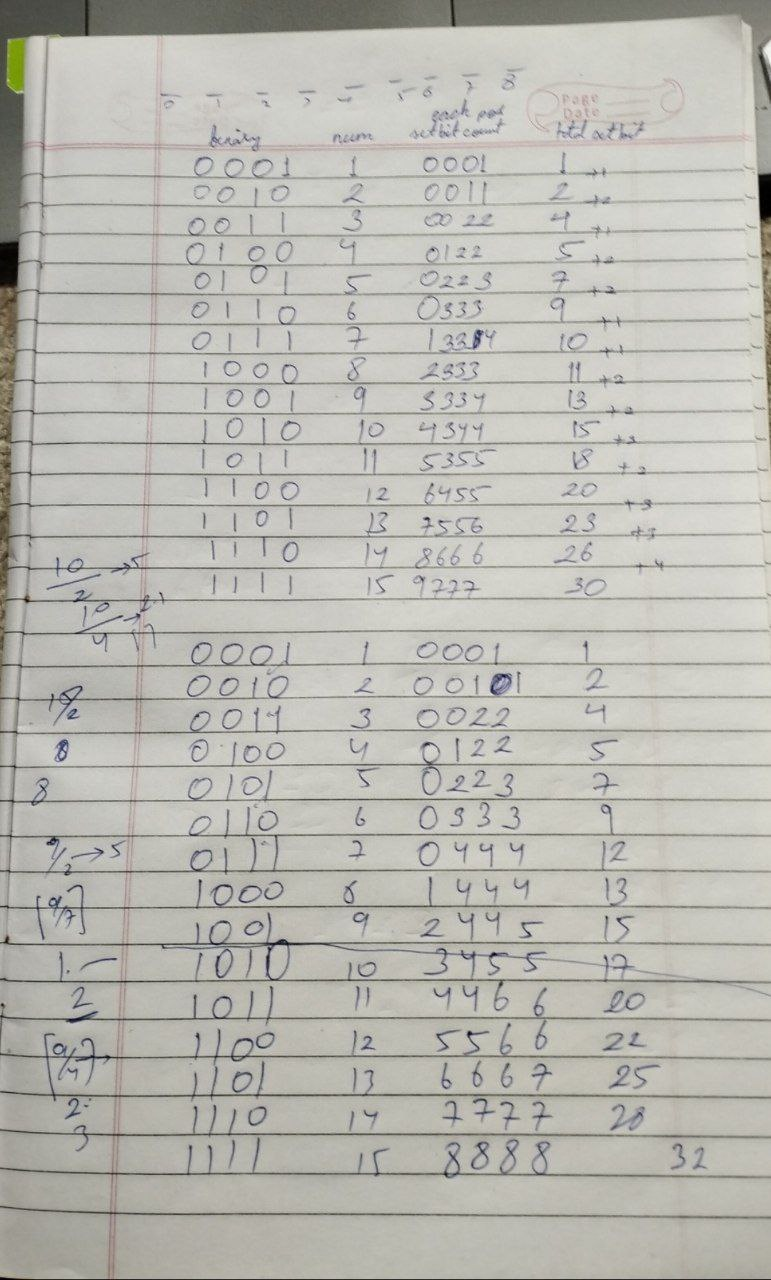 0 1 2 3 4 5 6 7 8
Page
Date
binary num each pos setbit count total setbit
0001 1 0001 1 +1
0010 2 0011 2 +2
0011 3 0022 4 +1
0100 4 0122 5 +2
0101 5 0223 7 +2
0110 6 0333 9 +1
0111 7 1334 10 +1
1000 8 2333 11 +2
1001 9 3334 13 +2
1010 10 4344 15 +3
1011 11 5355 18 +2
1100 12 6455 20 +3
1101 13 7556 23 +3
1110 14 8666 26 +4
1111 15 9777 30
10/2 → 5
10/4 →
0001 1 0001 1
0010 2 0011 2
0011 3 0022 4
0100 4 0122 5
8
0101 5 0223 7
0110 6 0333 9
9/2 → 5 0111 7 0444 12
1000 8 1444 13
[9/7] 1001 9 2445 15
1. 1010 10 3455 17
2 1011 11 4466 20
1100 12 5566 22
1101 13 6667 25
2 1110 14 7777 28
3
1111 15 8888 32